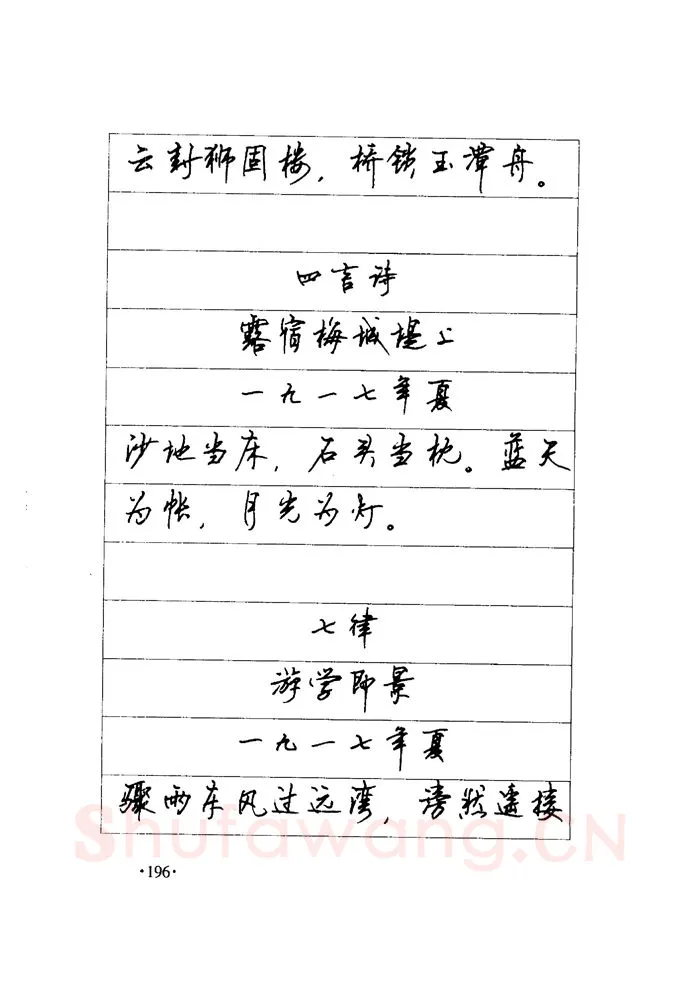 云封狮固楼，桥锁玉潭舟。
四言诗
露宿梅城堤上
一九一七年夏
沙地当床，石头当枕。蓝天
为帐，月光为灯。
七律
游学即景
一九一七年夏
骤雨东风过远湾，滂然遥接
·196·
Shufawang.CN